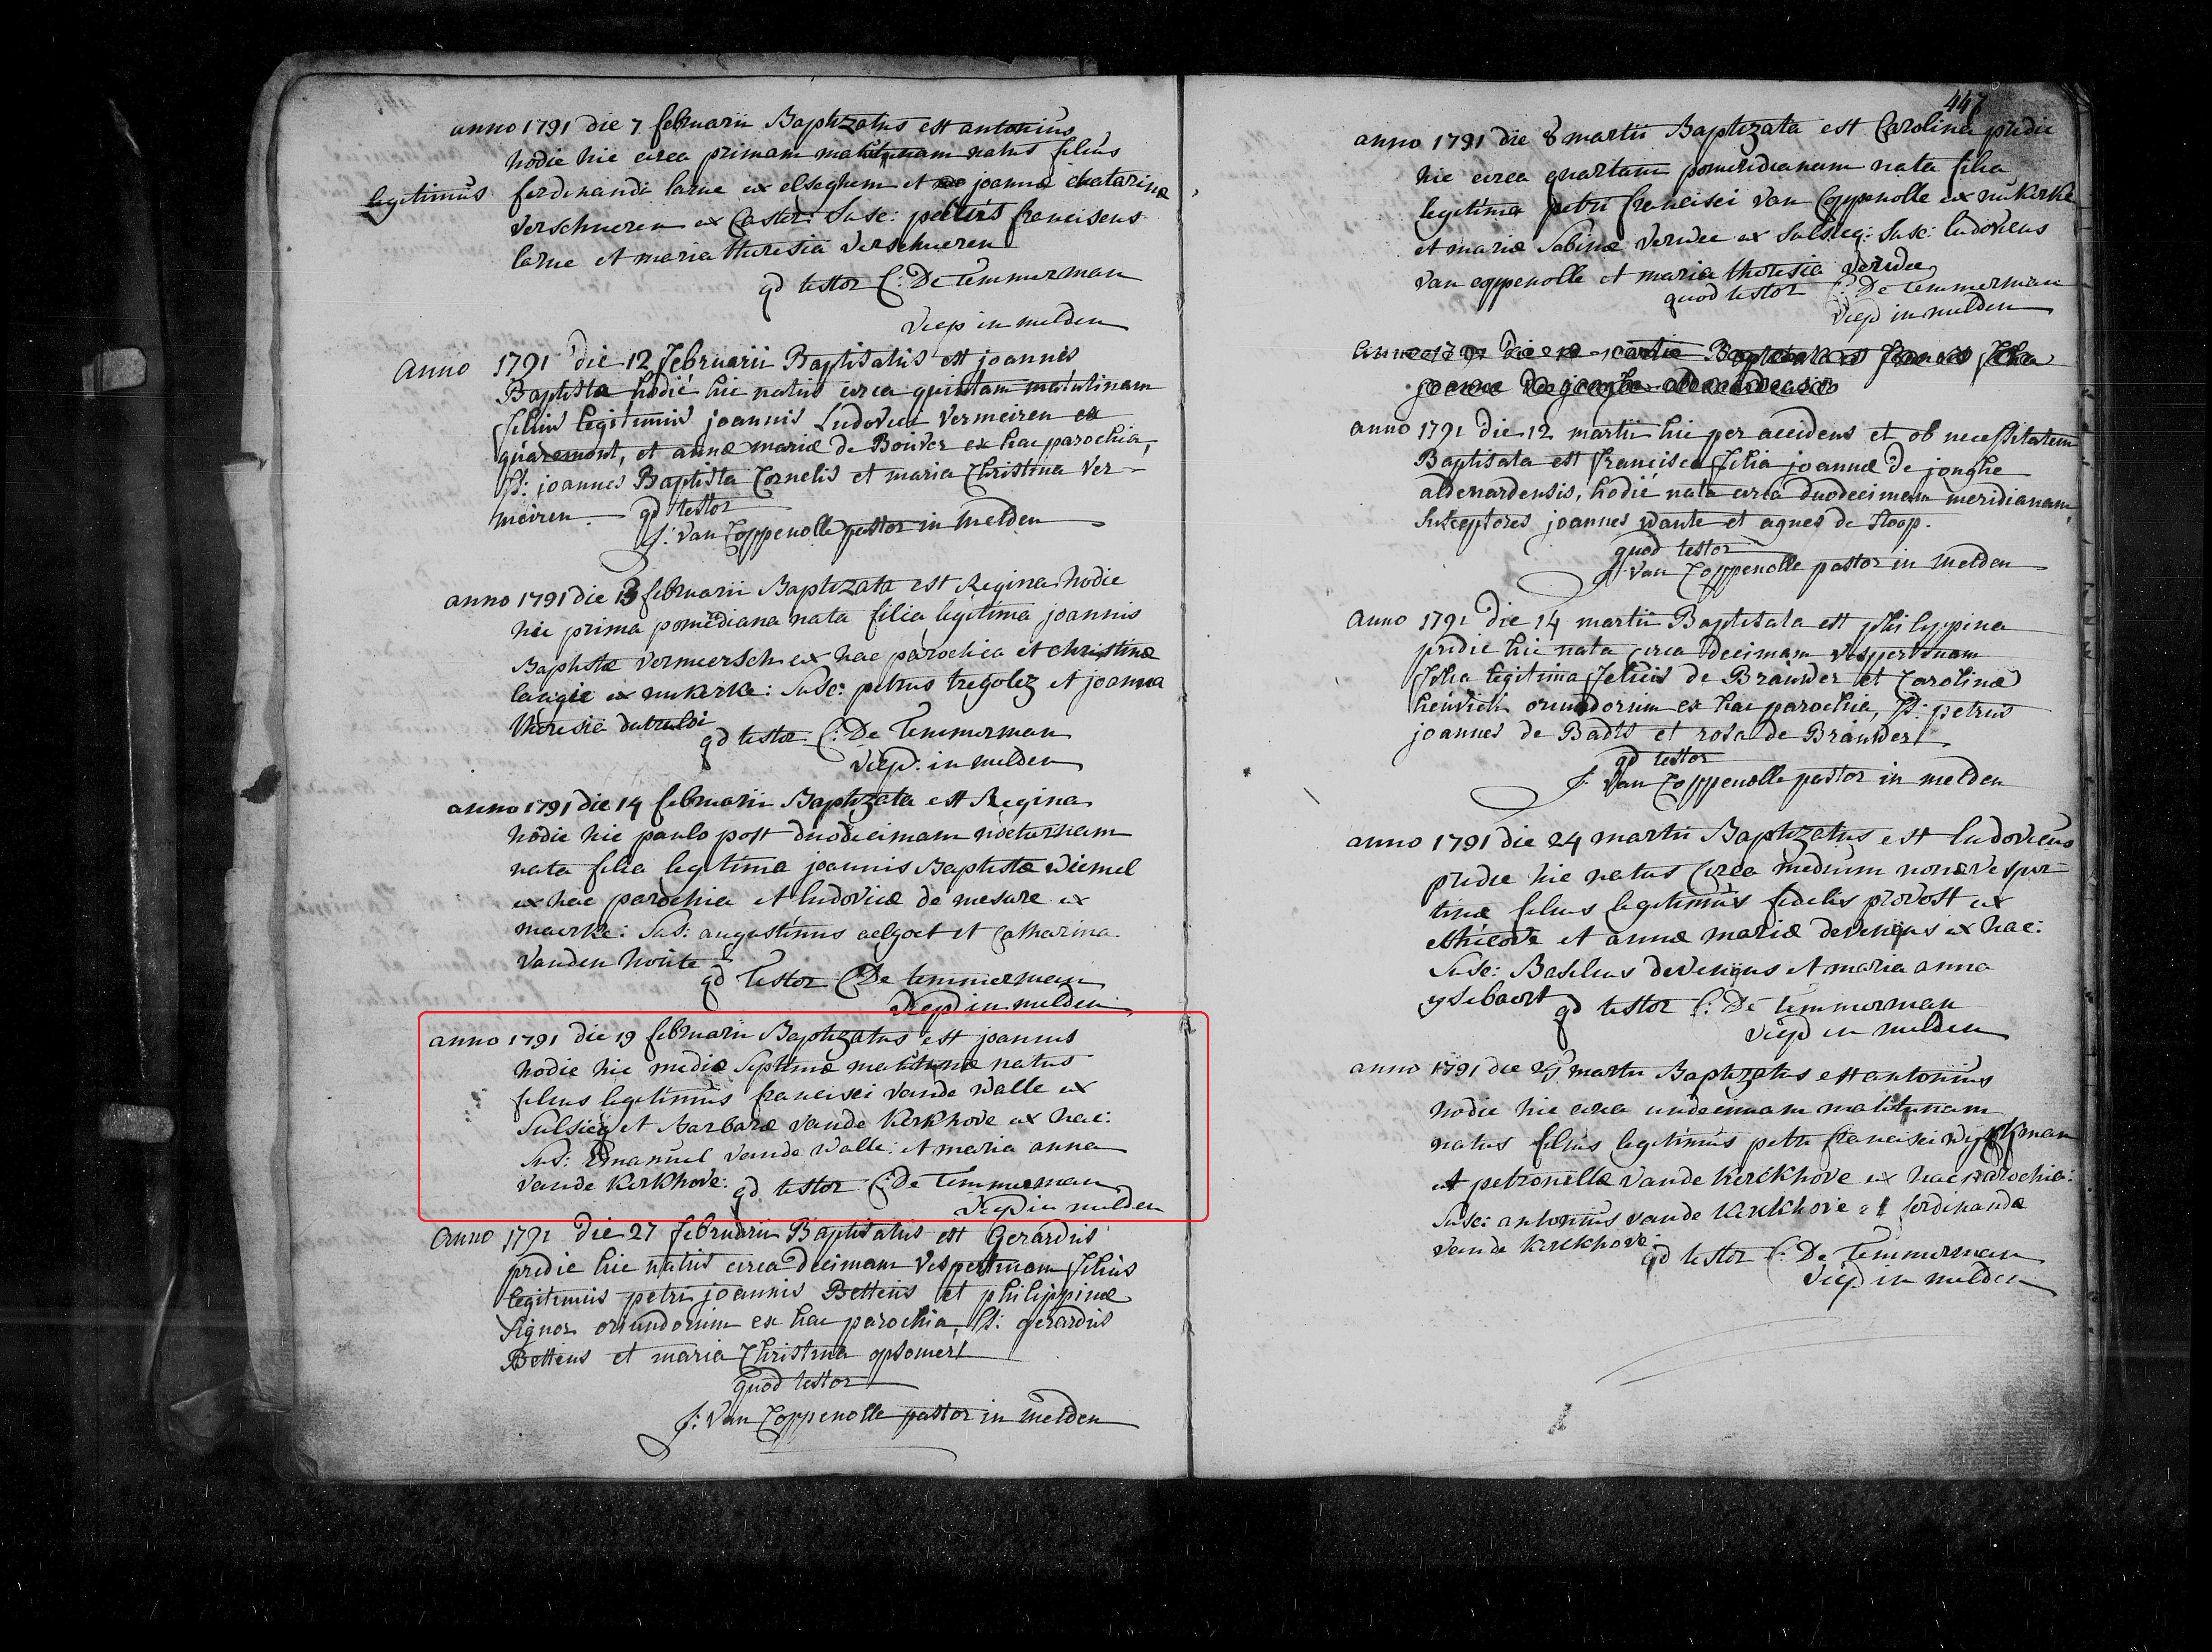 anno 1791 die 7 februarii Baptizatus est antonius
hodie hic circa primam matutinam natus filius
legitimus ferdinandi larue ex elseghem et joannæ chatarinæ
Verschueren ex Caster: Susc: petrus franciscus
larue et maria theresia Verschueren
qd testor C: De temmerman
vicep in melden
Anno 1791 die 12 februarii Baptisatus est joannes
Baptista hodiè hic natus circa quintam matutinam
filius legitimus joannis Ludovici Vermeiren ex
quaremont, et annæ mariæ de Bouver ex hac parochia,
SS: joannes Baptista Cornelis et maria Christina Ver-
meiren. qd testor
J: Van Coppenolle pastor in Melden
anno 1791 die 13 februarii Baptizata est Regina hodie
hic prima pomediana nata filia legitima joannis
Baptistæ Vermeersch ex hac parochia et christinæ
langie ex nukerke: Susc: petrus tregolez et joanna
theresia
qd testor C: De Temmerman
vicep: in melden
anno 1791 die 14 februarii Baptizata est Regina
hodie hic paulo post duodecimam nocturnam
nata filia legitima joannis Baptistæ wiemel
ex hac parochia et ludovicæ de mesure ex
maerke: Sus: augustinus aelgoet et Catharina
Vanden houte
qd Testor C De temmerman
vicep in melden
anno 1791 die 19 februarii Baptizatus est joannes
hodie hic mediæ septimæ matutinæ natus
filius legitimus francisci vande walle ex
Sulsicq et barbaræ vande kerkhove ex hac:
Sus: Emanuel vande walle: et maria anna
vande kerkhove: qd testor C: De temmerman
vicep in melden
Anno 1791 die 27 februarii Baptisatus est Gerardus
pridie hic natus circa decimam vespertinam filius
legitimus petri joannis Bettens et philippinæ
Signor oriundorum ex hac parochia, SS: gerardus
Bettens et maria Christina opsomer
quod testor
J: Van Coppenolle pastor in Melden
447
anno 1791 die 8 martii Baptizata est Carolina pridie
hic circa quartam pomeridianam nata filia
legitima petri francisci Van Coppenolle ex nukerke
et mariæ Sabinæ Verwee ex Sulsicq: Susc: ludovicus
van coppenolle et maria theresia Verwee
quod testor C: De temmerman
vicep in melden
anno 1791 die 12 martii hic per accidens et ob necessitatem
Baptisata est francisca filia joannæ de jonghe
aldenardensis, hodiè nata circa duodecimam meridianam,
Susceptores joannes wante et agnes de Stoop.
quod testor
J: Van Coppenolle pastor in Melden
Anno 1791 die 14 martii Baptisata est philippina
pridie hic nata circa decimam vespertinam
filia legitima felicis de Brauwer et Carolinæ
heinrich oriundorum ex hac parochia, SS: petrus
joannes de Badts et rosa de Brauwer
qd testor
J: Van Coppenolle pastor in melden
anno 1791 die 24 martii Baptizatus est ludovicus
pridie hic natus circa medium nonæ vesper-
tinæ filius legitimus fidelis provost ex
et annæ mariæ devenijns ex hac:
Susc: Basilius devenijns et maria anna
ysebaert qd testor C: De temmerman
vicep in melden
anno 1791 die martii Baptizatus est antonius
hodie hic circa undecimam matutinam
natus filius legitimus petri francisci
et petronellæ vande kerckhove ex hac parochia:
Susc: antonius vande kerckhove et ferdinanda
vande kerckhove:
qd testor C: De Temmerman
vicep in melden